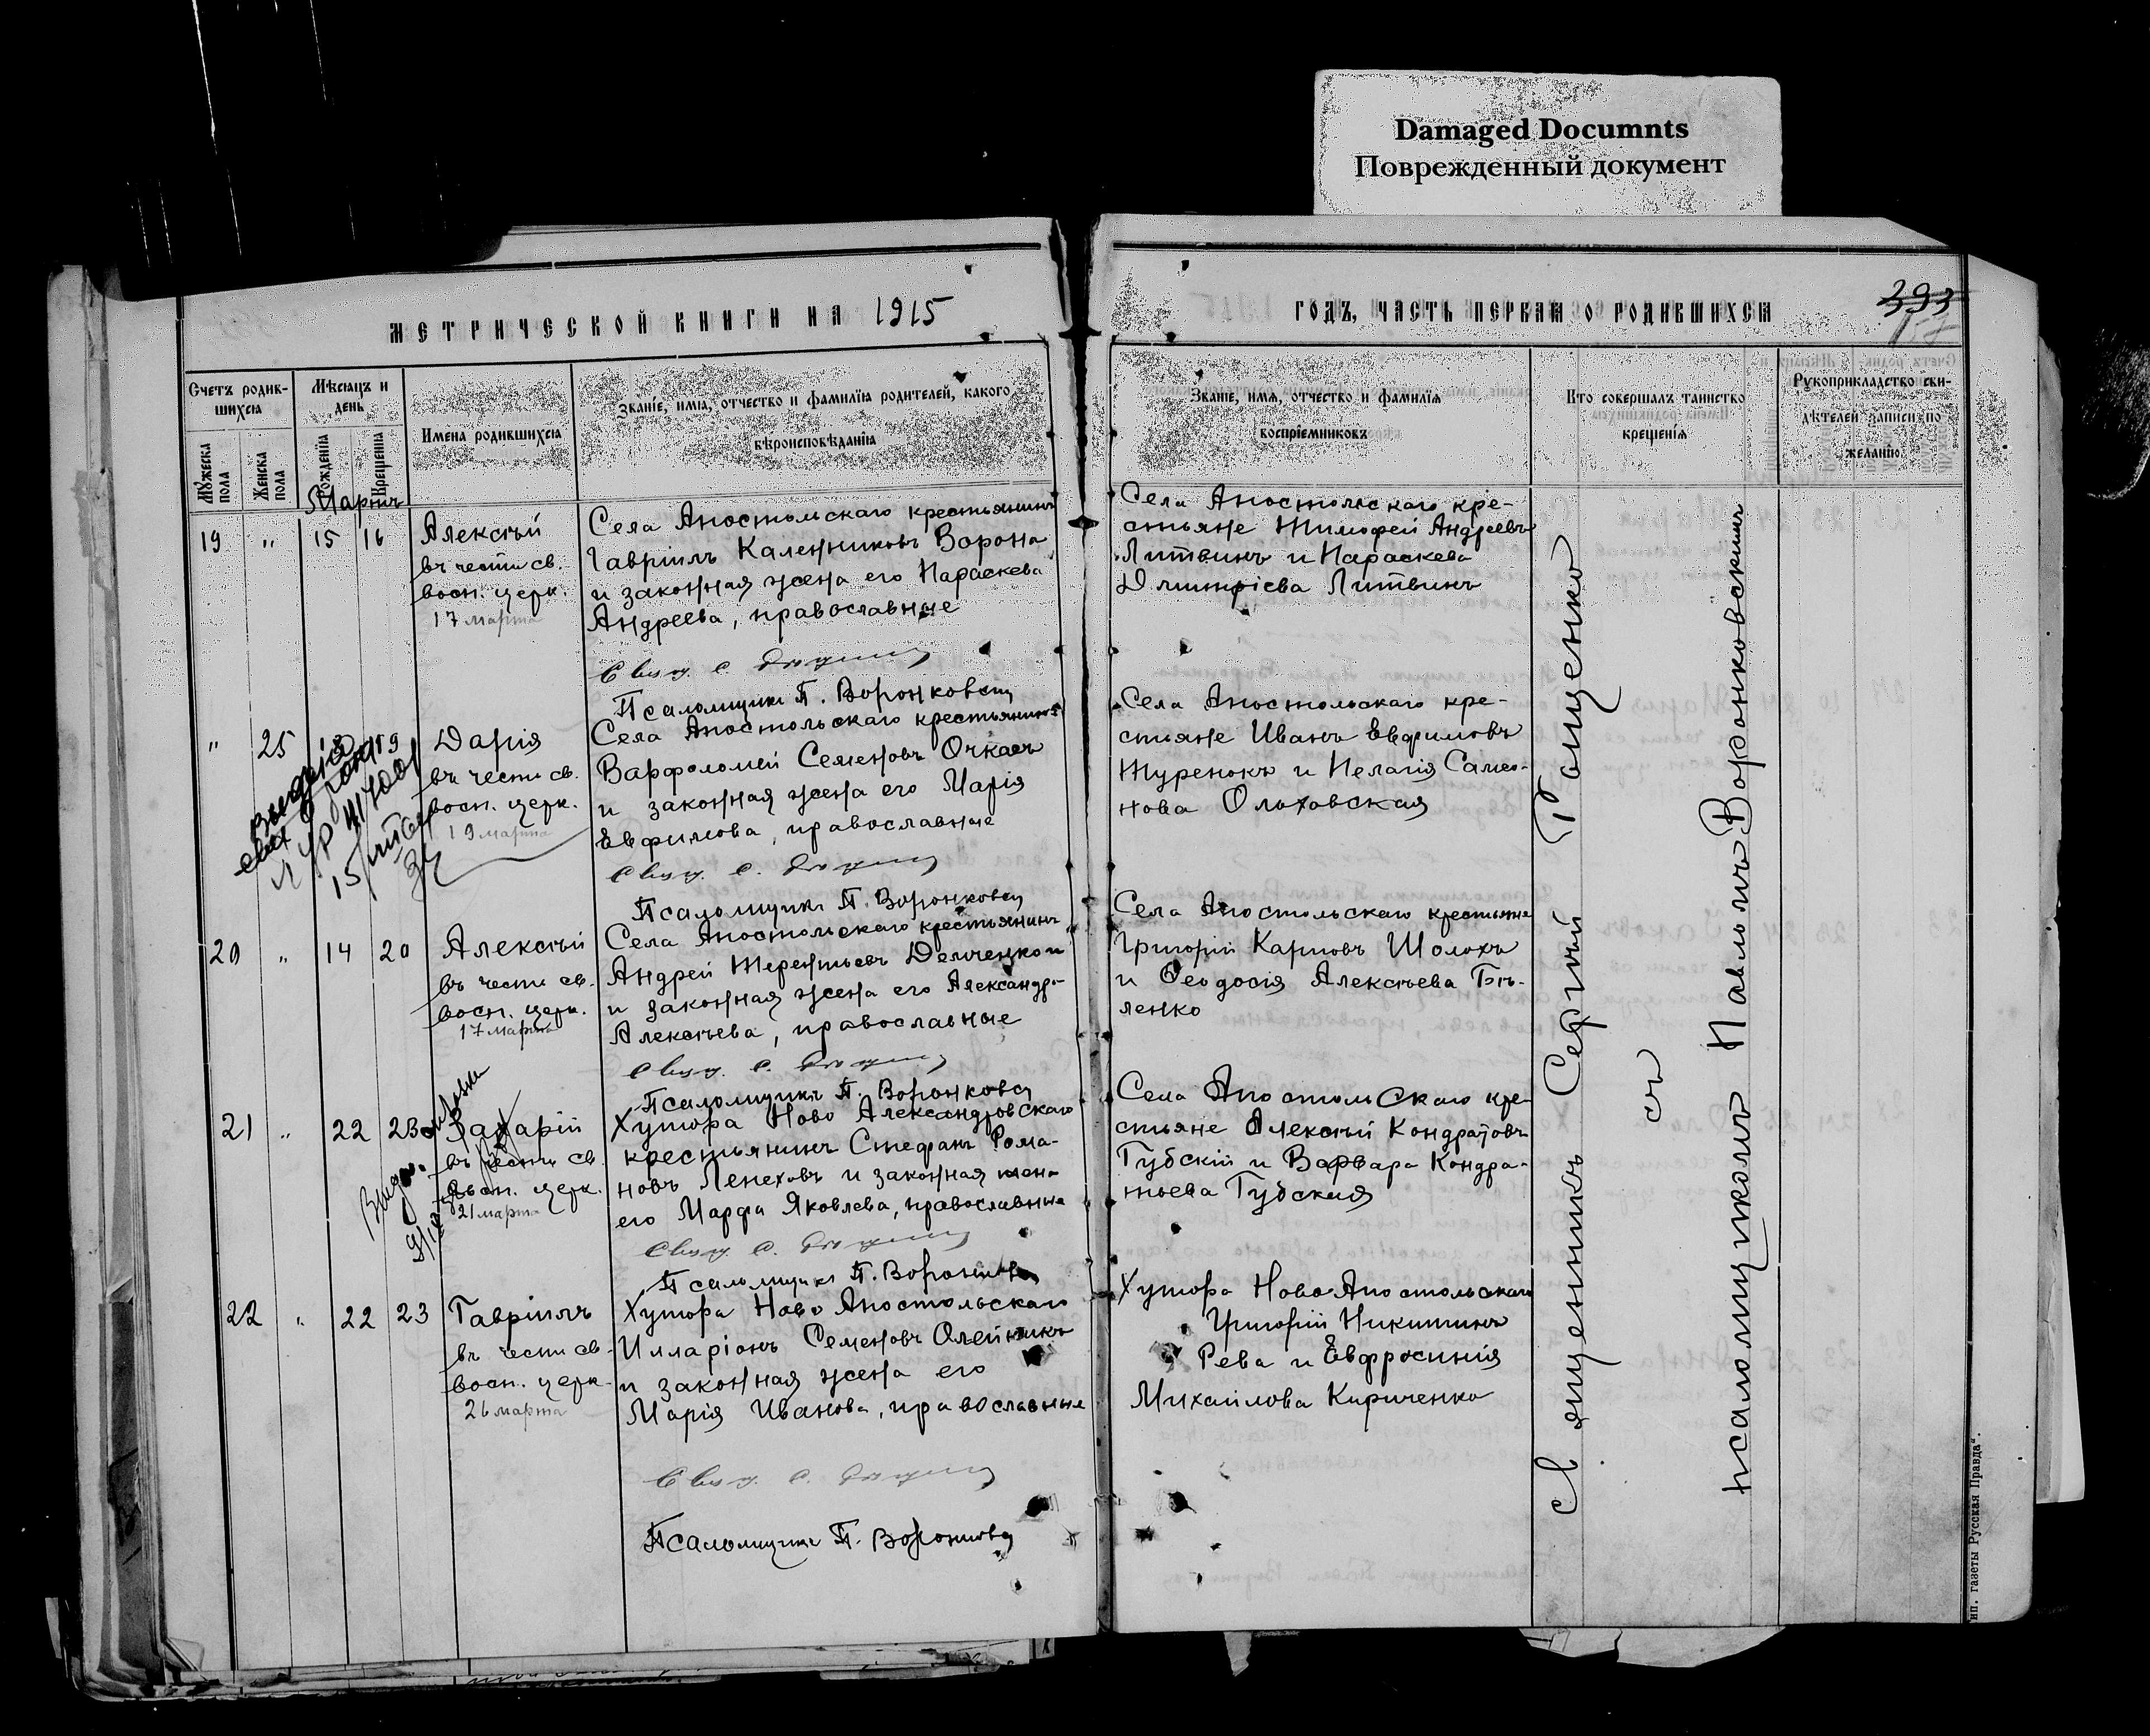 Damaged Documnts
Поврежденный документ
МЕТРИЧЕСКОЙ КНИГИ НА 1915
ГОДЪ, ЧАСТЬ ПЕРВАЯ О РОДИВШИХСЯ
393
Счетъ родив-
шихся
Мужеска пола
Женска пола
Мѣсяцъ и
день
Рожденія
Крещенія
Имена родившихся
Званіе, имя, отчество и фамилія родителей, какого
вѣроисповѣданія
Званіе, имя, отчество и фамилія
воспріемниковъ
Кто совершалъ таинство
крещенія
Рукоприкладство сви-
дѣтелей записи по
желанію
Мартъ
19 " 15 16
Алексѣй
въ честь св.
восп. церк.
17 марта
Села Апостольскаго крестьянинъ
Гавріилъ Каленниковъ Ворона
и законная жена его Параскева
Андреева, православные
Псаломщикъ П. Воронковскі
Села Апостольскаго кре-
стьяне Тимофей Андреевъ
Литвинъ и Параскева
Дмитріева Литвинъ
" 25
19
Дарія
въ честь св.
восп. церк.
19 марта
Села Апостольскаго крестьянинъ
Варфоломій Семеновъ Очкасъ
и законная жена его Марія
Евфимова, православные
Псаломщикъ П. Воронковскі
Села Апостольскаго кре-
стьяне Иванъ Евфимовъ
Туренокъ и Пелагія Самсо-
нова Олаховская
20 " 14 20
Алексѣй
въ честь св.
восп. церк.
17 марта
Села Апостольскаго крестьянинъ
Андрей Терентьевъ
и законная жена его Александра
Алексѣева, православные
Псаломщикъ П. Воронковскі
Села Апостольскаго крестьяне
Григорій Карповъ Шолохъ
и Ѳеодосія Алексѣева Бѣ-
ленко
21 " 22 23
Захарій
въ честь св.
восп. церк.
21 марта
Хутора Ново Александровскаго
крестьянинъ Стефанъ Рома-
новъ Лепеховъ и законная жена
его Марфа Яковлева, православные
Псаломщикъ П. Воронков
Села Апостольскаго кре-
стьяне Алексѣй Кондратовъ
Губскій и Варвара Кондра-
тьева Губская
22 " 22 23
Гавріилъ
въ честь св.
восп. церк.
26 марта
Хутора Ново Апостольскаго
Илларіонъ Семеновъ Олейникъ
и законная жена его
Марія Иванова, православные
Псаломщикъ П. Воронков
Хутора Ново Апостольскаго
Григорій Никитинъ
Рева и Евфросинія
Михаилова Кириченко
Священникъ Сергій Гащенко
съ
псаломщикомъ Павломъ Воронковскимъ
ип. газеты Русская Правда".